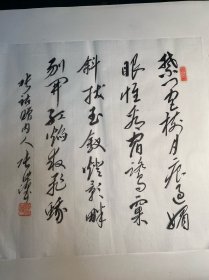 禁门宫树月痕过媚
眼惟看宿鹭窠
斜拔玉钗灯影畔
剔开红焰救飞蛾
张祜赠内人